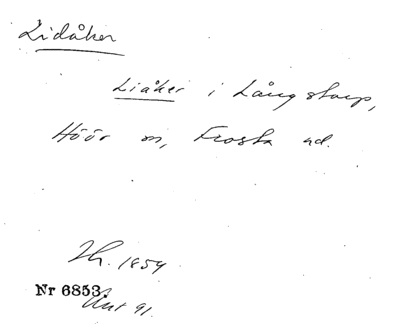 Lidåker
Liåker i Långstorp,
Höör sn, Frosta hd.
Th. 1859
Nr 6853.
Ant 91.